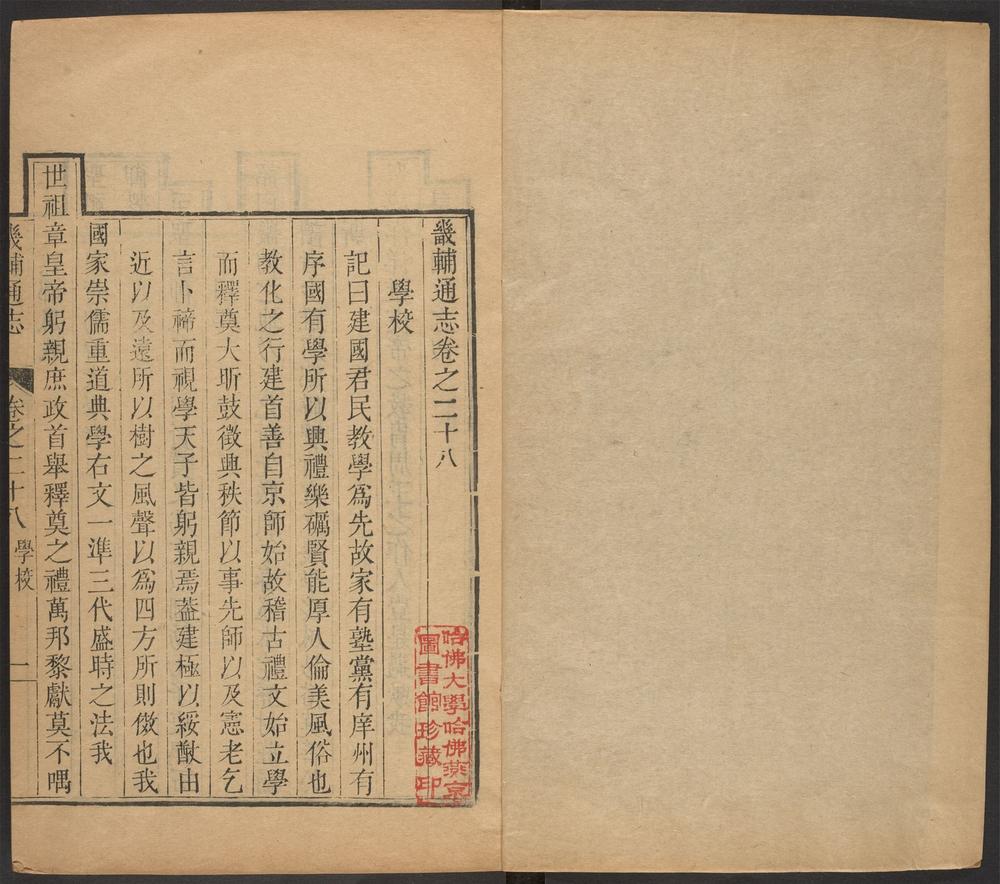 畿輔通志卷之二十八
學校
記曰建國君民教學爲先故家有塾黨有庠州有
序國有學所以興禮樂礪賢能厚人倫美風俗也
教化之行建首善自京師始故稽古禮文始立學
而釋奠大昕鼓徵典秩節以事先師以及憲老乞
言卜禘而視學天子皆躬親焉葢建極以綏猷由
近以及遠所以樹之風聲以爲四方所則傚也我
國家崇儒重道典學右文一準三代盛時之法我
世祖章皇帝躬親庶政首舉釋奠之禮萬邦黎獻莫不喁
畿輔通志
卷之二十八 學校
一
哈佛大學哈佛燕京
圖書館珍藏印